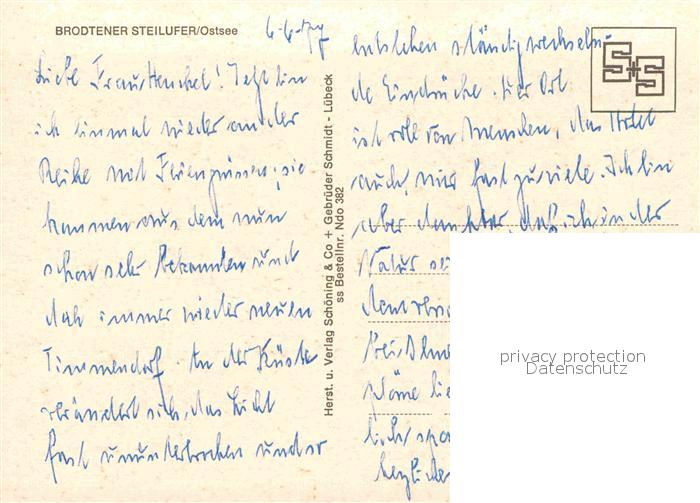 BRODTENER STEILUFER/Ostsee
Liebe Frau Henckel! Jetzt bin
ich einmal wieder an der
Reihe mit Feriengrüssen; sie
kommen aus dem nun
schon sehr bekannten und
doch immer wieder neuen
Timmendorf. An der Küste
verändert sich das Licht
fast ununterbrochen und es
entstehen ständig wechseln-
de Eindrücke. Der Ort
ist voll von Menschen, das Hotel
auch, mir fast zu viele. Ich bin
aber dankbar, daß ich in der
Natur
dem
Pläne
lich
herzliche
Herst. u. Verlag Schöning & Co + Gebrüder Schmidt - Lübeck
ss Bestellnr. Ndo 382
S+S
privacy protection
Datenschutz